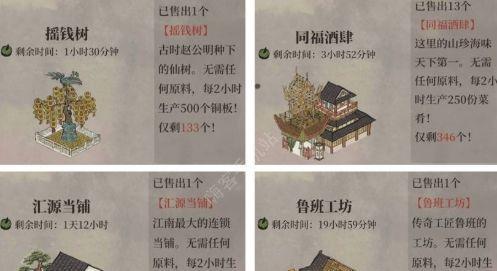 已售出1个
摇钱树
【摇钱树】
剩余时间：1小时30分钟
古时赵公明种下
的仙树。无需任
何原料，每2小时
生产500个铜板！
仅剩133个！
已售出13个
同福酒肆
【同福酒肆】
剩余时间：3小时52分钟
这里的山珍海味
天下第一。无需
任何原料，每2小
时生产250份菜
肴！
仅剩346个！
已售出1个
汇源当铺
【汇源当铺】
剩余时间：1天12小时
江南最大的连锁
当铺。无需任何
原料，每2小时生
已售出1个
鲁班工坊
【鲁班工坊】
剩余时间：19小时59分钟
传奇工匠鲁班的
工坊。无需任何
原料，每2小时生